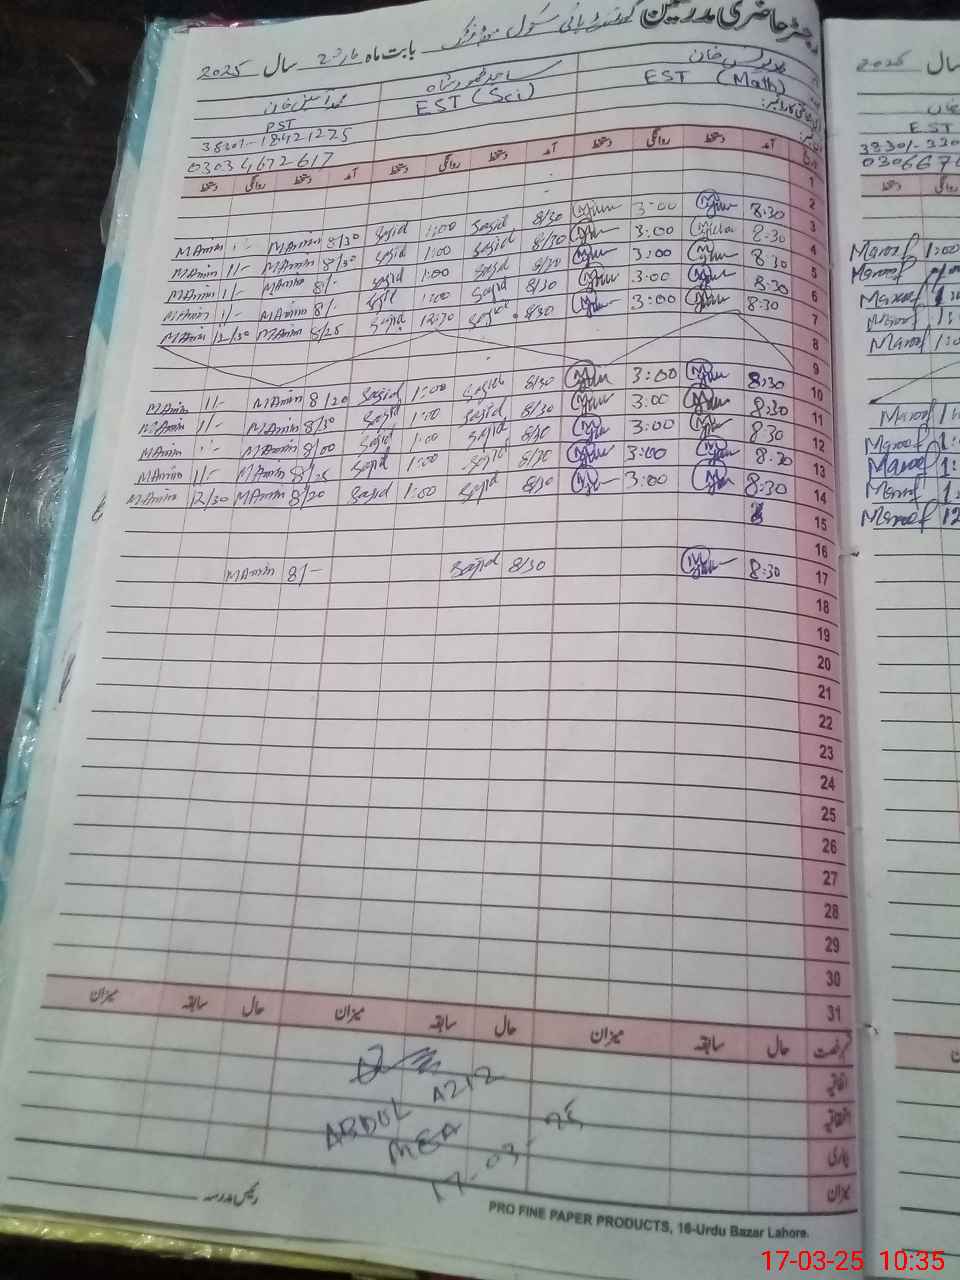 رجسٹر حاضری مدرسین گورنمنٹ ہائی سکول بابت ماہ مارچ سال 2025
محمد یونس خان ساجد ظہور شاہ محمد امین خان
EST (Math) EST (Sci) PST
38301-18421275
03034672617
تاریخ آمد دستخط روانگی دستخط آمد دستخط روانگی دستخط آمد دستخط روانگی دستخط
1
2
MAmin 1/- MAmin 8/30 Sajid 1:00 Sajid 8/30 3:00 8:30 3
MAmin 1/- MAmin 8/30 Sajid 1:00 Sajid 8/30 3:00 8:30 4
MAmin 1/- MAmin 8/- Sajid 1:00 Sajid 8/30 3:00 8:30 5
MAmin 1/- MAmin 8/- Sajid 1:00 Sajid 8/30 3:00 8:30 6
MAmin 12/30 MAmin 8/25 Sajid 12:30 Sajid 8/30 3:00 8:30 7
8
9
MAmin 1/- MAmin 8/20 Sajid 1:00 Sajid 8/30 3:00 8:30 10
MAmin 1/- MAmin 8/30 Sajid 1:00 Sajid 8/30 3:00 8:30 11
MAmin 1/- MAmin 8/00 Sajid 1:00 Sajid 8/30 3:00 8:30 12
MAmin 1/- MAmin 8/25 Sajid 1:00 Sajid 8/30 3:00 8:30 13
MAmin 12/30 MAmin 8/20 Sajid 1:00 Sajid 8/30 3:00 8:30 14
15
16
MAmin 8/- Sajid 8/30 8:30 17
18
19
20
21
22
23
24
25
26
27
28
29
30
31
حال سابقہ میزان حال سابقہ میزان حال سابقہ میزان
اتفاقیہ
استحقاقیہ
بیماری
میزان
ABDUL AZIZ
MEA
17-03-25
رئیس مدرسہ
PRO FINE PAPER PRODUCTS, 16-Urdu Bazar Lahore.
سال 2025
EST
38301-330
030667
دستخط روانگی
Maroof 1:00
Maroof
Maroof
Maroof
Maroof
Maroof
Maroof
Maroof
Maroof
Maroof 12
17-03-25 10:35